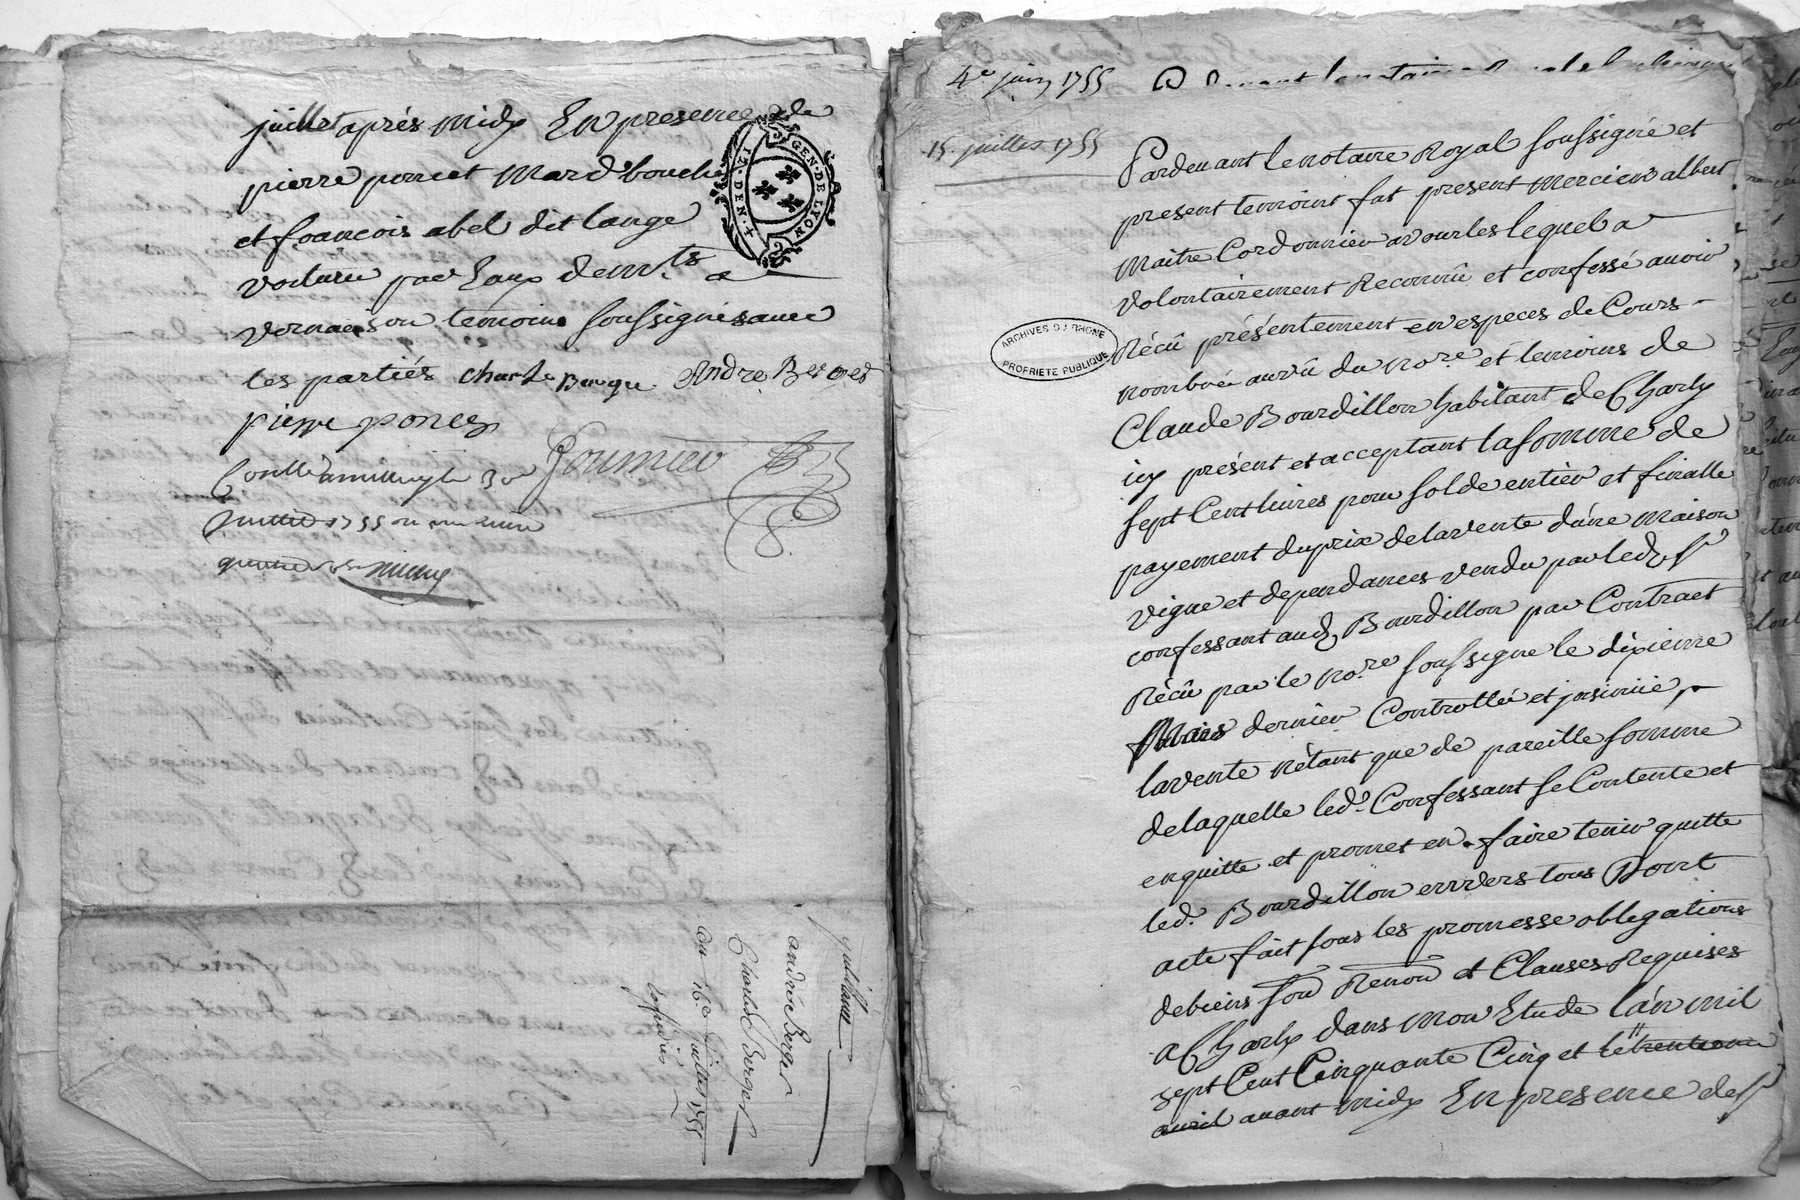 juillet après midy En presence de
pierre poncet Mard boucher
et francois abel dit lange
voiturier par Eaux dem.ts a
vernaison temoins soussignés avec
les parties Charle Berge Andre Berger
pierre poncet
fournier
juillet 1755
GEN·DE·LYON
12·DEN·
quittance
andré Berger
Charles Berger
du 16e juillet 1755
4e juin 1755
15 juillet 1755
Pardevant le notaire Royal soussigné et
present temoins fut present Mercien albert
Maitre Cordonnier a vourles lequel a
volontairement Reconnû et confessé avoir
Récû présentement en especes de Cours
nombré auvû du no.re et temoins de
Claude Bourdillon habitant de Charly
icy présent et acceptant la somme de
sept Cent livres pour solde entier et finalle
payement du prix de la vente d'une Maison
vigne et dependances vendu par led. Sr
confessant aud. Bourdillon par Contract
Récû par le no.re soussigné le dixieme
Mars dernier Controllé et insinué,
la vente n'étant que de pareille somme
de laquelle led. Confessant se Contente et
en quitte et promet en faire tenir quitte
led. Bourdillon envvers tous Dont
acte fait sous les promesse obligations
de biens sou Renon et Clauses Requises
a Charly dans mon Etude l'an mil
sept Cent Cinquante Cinq et le trente
avril avant midy En presence de Sr
ARCHIVES DU RHONE
PROPRIETE PUBLIQUE